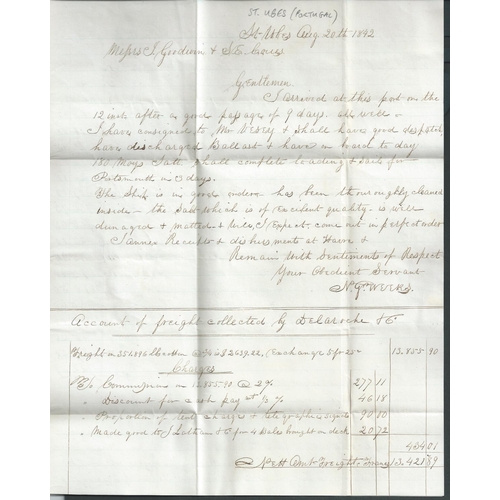 ST. UBES (PORTUGAL)
St. Ubes Aug 20th 1892
Messrs J. Goodwin & S.E.
Gentlemen
I arrived at this port on the
12 inst after a good passage of 9 days.
I have consigned to Mr & shall have good despatch
have discharged Ballast & have on board to day
180 Moys Salt shall complete loading & sail for
Portsmouth in 3 days.
The Ship is in good order has been thouroughly cleaned
inside - the Salt which is of Excellent quality - is well
dunnaged & matted & will, I Expect come out in perfect order
I annex Receipts & disbursments at Havre &
Remain With Sentiments of Respect
Your Obedient Servant
N. G.
Account of freight collected by Delaroche & C
Freight on 351.896 lb 2639.22, (Exchange 5 for 25 13.855 90
Charges
Commissions on 13.855.90 @ 2% 277 11
" Discount for cash pay at ⅓ % 46 18
" Proportion of charges & telegraphic 90 10
" Made good to J Latham & C for 4 bales on deck 20 72
434.01
Nett Amt Freight - Francs 13.421 89